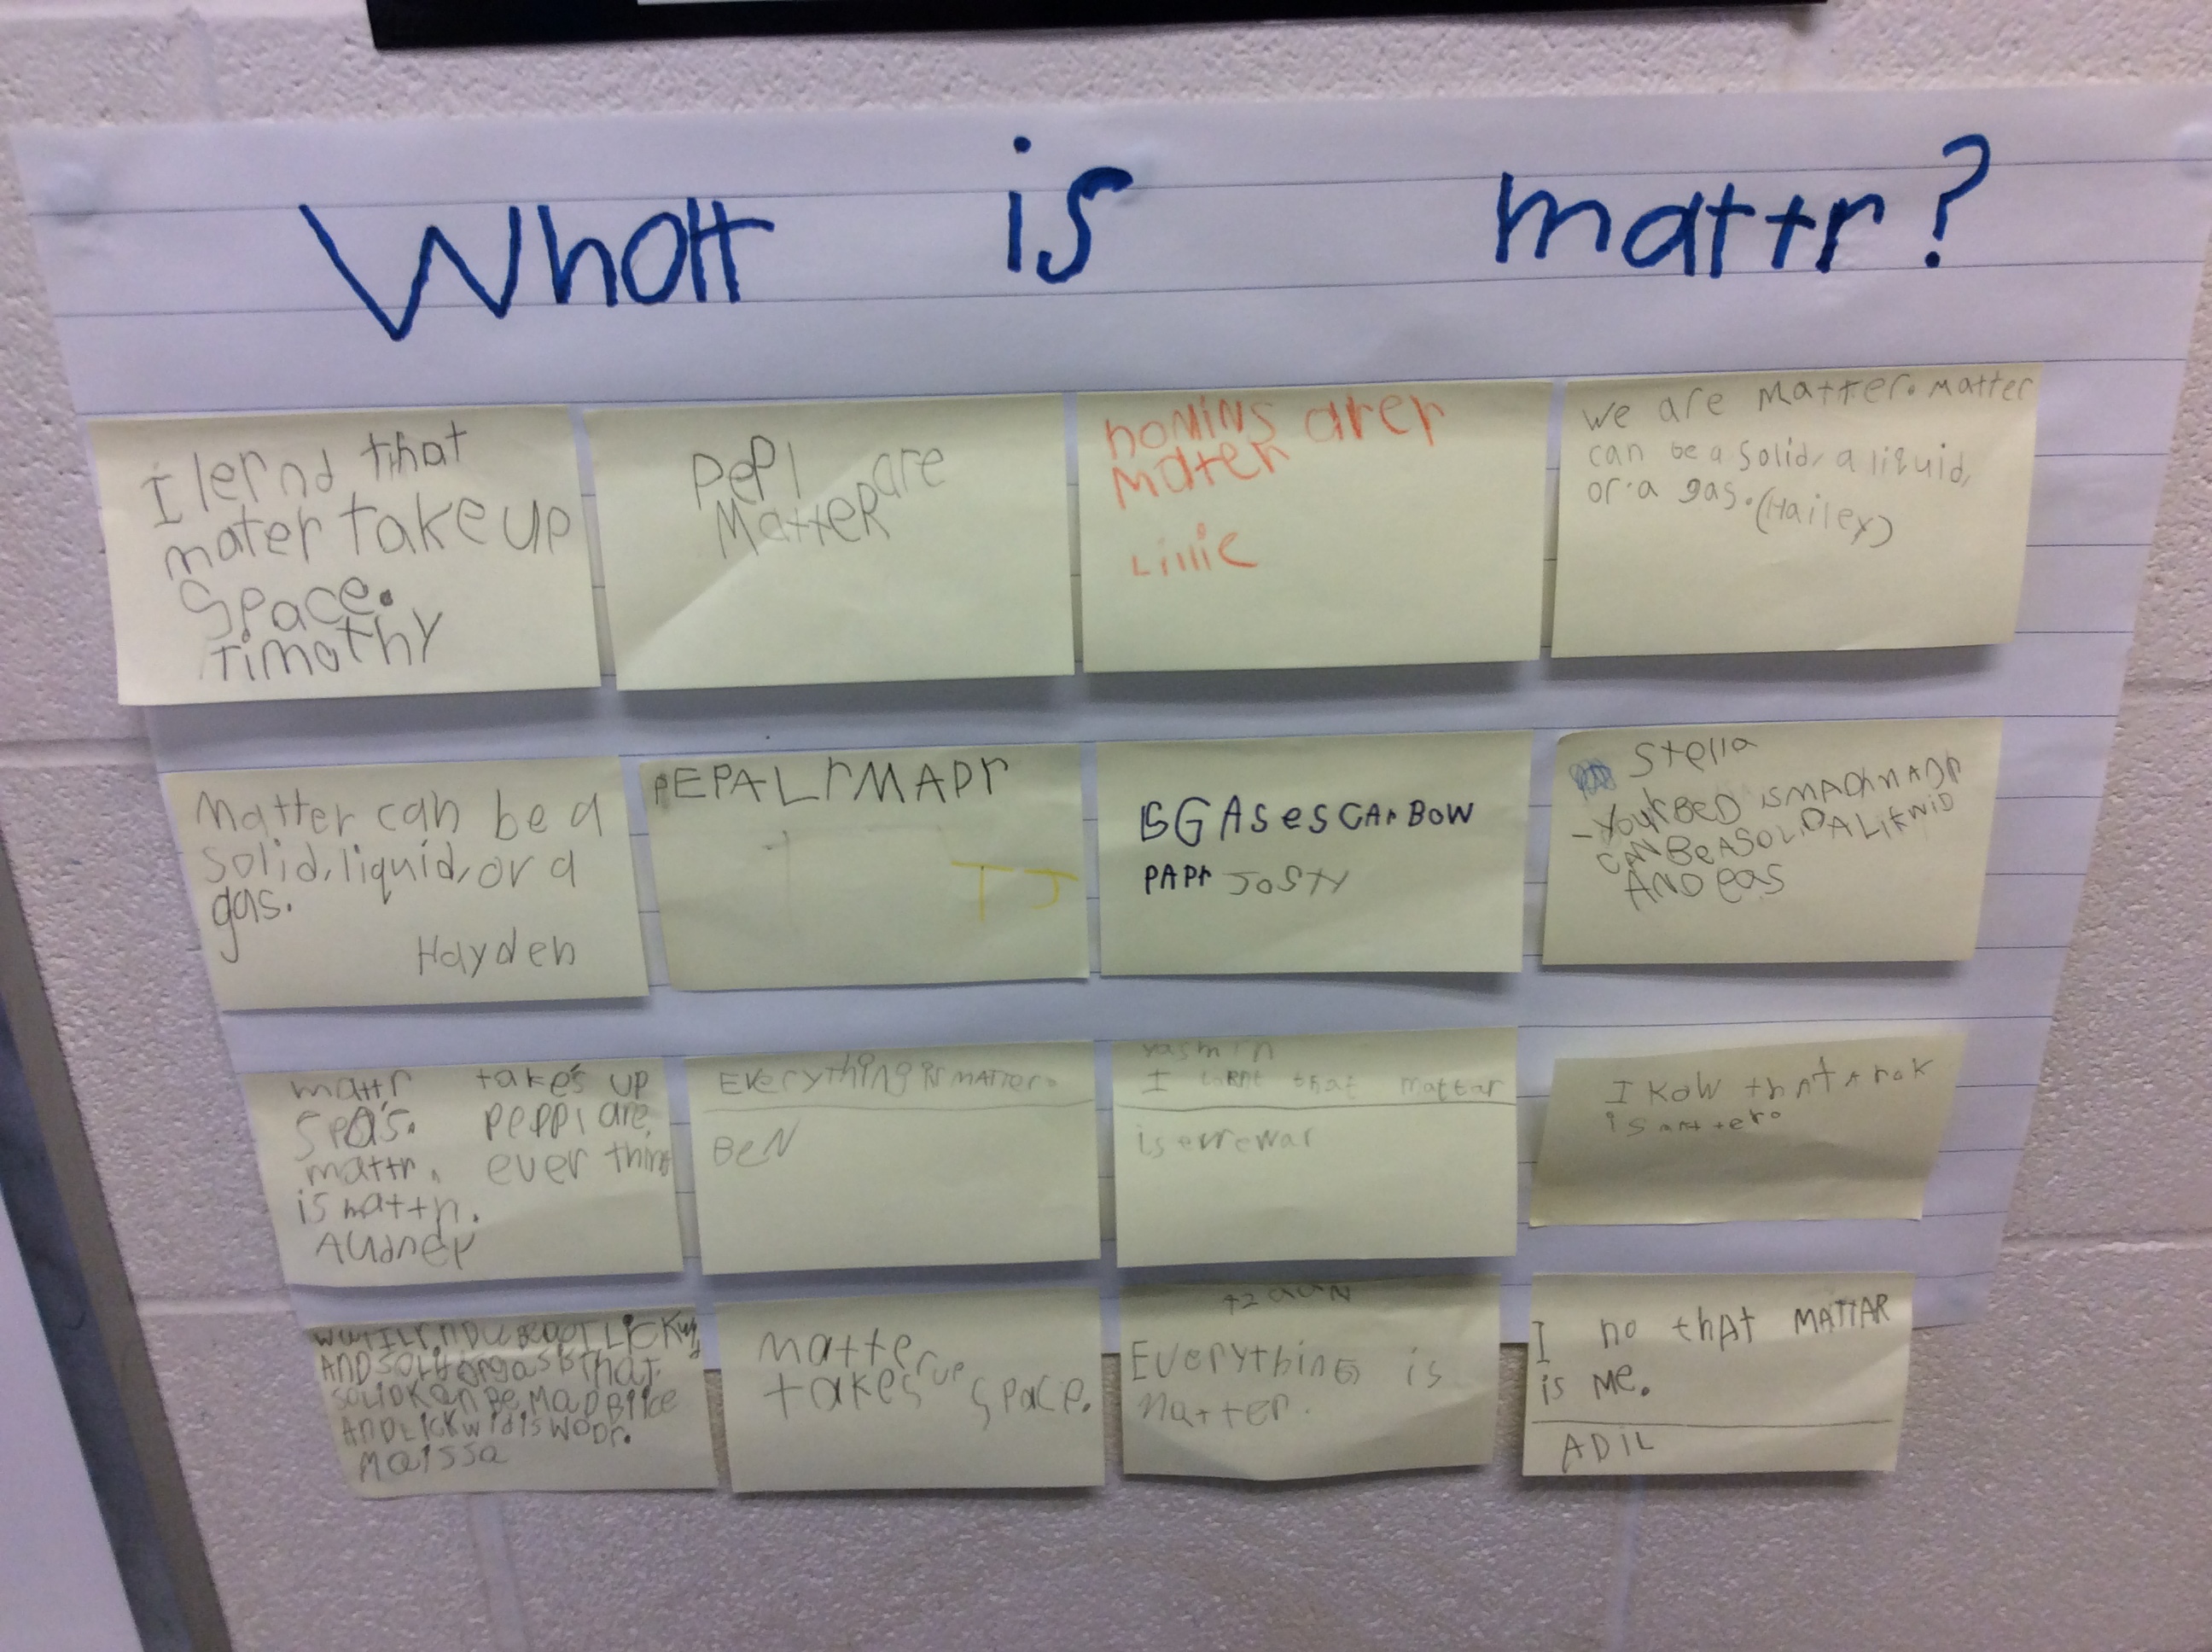 What is mattr?
I lernd that
mater take up
Space.
Timothy
PePl are
MatteR
homins arer
mater
Lillie
we are matter. matter
can be a solid, a liquid,
or a gas. (Hailey)
Matter can be a
solid, liquid, or a
gas.
Hayden
PEPAL r MADr
TJ
GAses CArBOW
PAPr JOSTY
Stella
BeD
CAN Be A SOLiD A LiKWiD
AND gas
mattr takes up
spas. peppl are
mattr. ever thing
is mattr.
Audrey
Everything is matter.
BeN
Yasmin
I that mattar
is
I KoW thAt A rok
is
AND
solid KAN Be MAD B
AND LicKwid is WoDr.
Maissa
matter
takes up space.
Everything is
matter.
I no that MATTAR
is me.
ADIL